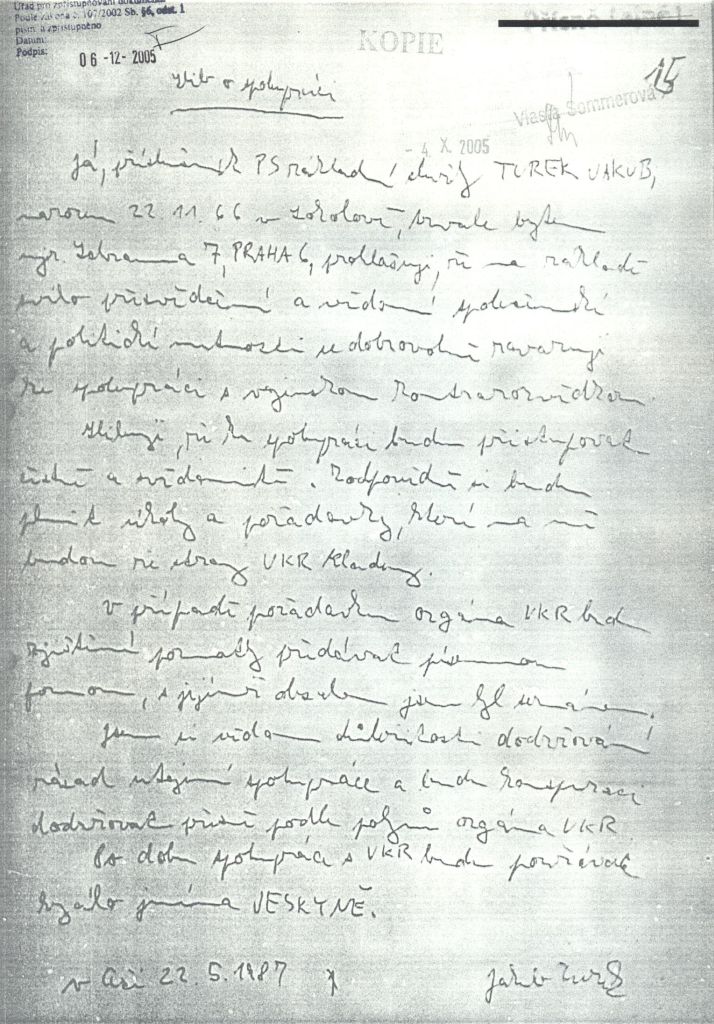 Úřad pro zpřístupňování dokumentů
Podle zákona č. 107/2002 Sb. §6, odst. 1
zpřístupněno
Datum:
Podpis:
06-12-2005
KOPIE
15
Slib o spolupráci
Vlasta Sommerová
- 4 X. 2005
Já, příslušník PS základní služby TUREK JAKUB,
narozen 22.11.66 v Sokolově, trvale bytem
7, PRAHA 6, prohlašuji, že na základě
svého přesvědčení a vědomí společenské
a politické nutnosti se dobrovolně zavazuji
ke spolupráci s vojenskou kontrarozvědkou.
Slibuji, že ke spolupráci budu přistupovat
čestně a svědomitě. Zodpovědně si budu
plnit úkoly a požadavky, které na mě
budou ze strany VKR kladeny.
V případě požadavku orgána VKR budu
zjištěné poznatky předávat písemnou
formou, s jejímž obsahem jsem byl seznámen.
Jsem si vědom důležitosti dodržování
zásad utajení spolupráce a budu konspiraci
dodržovat přesně podle pokynů orgána VKR.
Po dobu spolupráce s VKR budu používat
krycího jména JESKYNĚ.
V Aši 22.5.1987
Jakub Turek